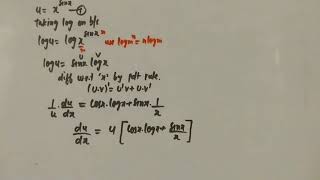 u = x^sinx —①
Taking log on b/s
logu = log x^sinx use log m^n = n log m
logu = sinx. logx
diff w.r.t 'x' by pdt rule.
(U.V)' = U'V + U.V'
1/u . du/dx = cosx. logx + sinx. 1/x
du/dx = u [cosx. logx + sinx/x]